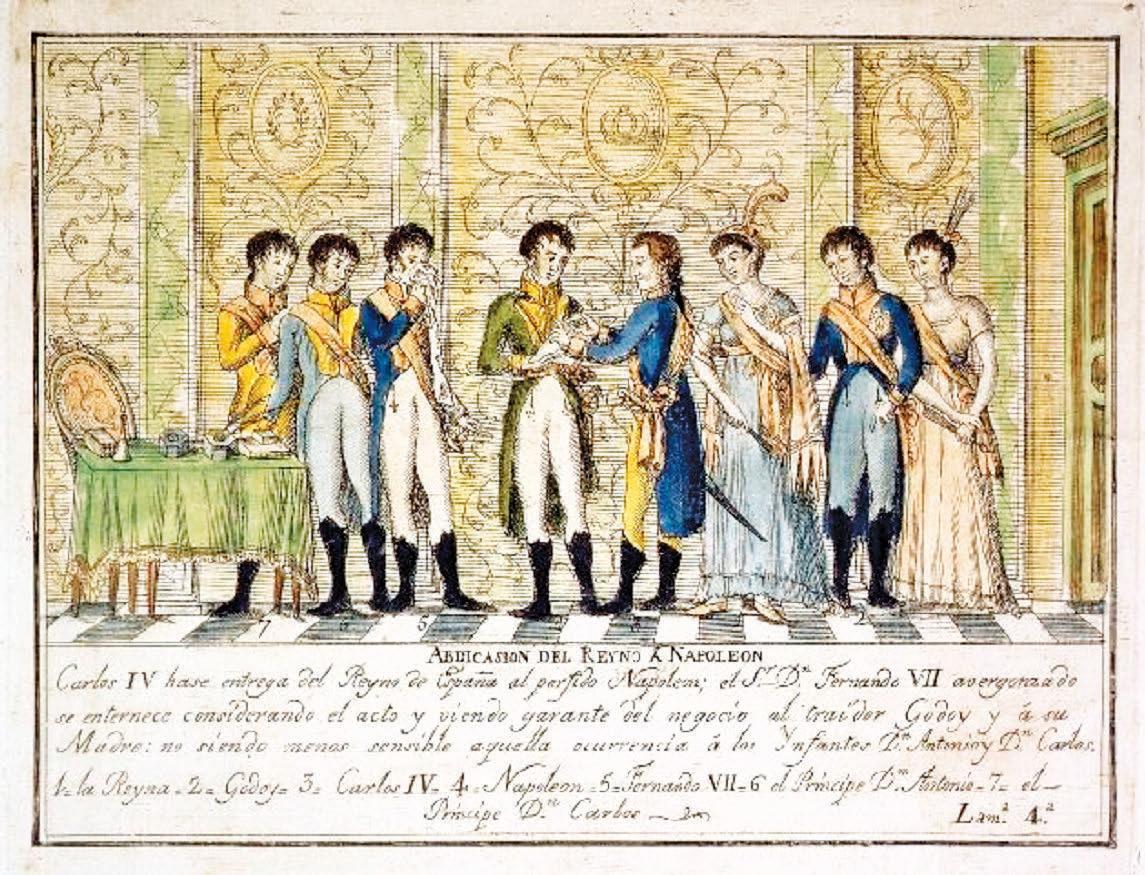 ABDICASION DEL REYNO A NAPOLEON
Carlos IV hase entrega del Reyno de España al perfido Napoleon; el Sr. Dn. Fernando VII avergonzado
se enternece considerando el acto y viendo garante del negocio al traidor Godoy y á su
Madre: no siendo menos sensible aquella ocurrencia á los Ynfantes Dn. Antonio y Dn. Carlos.
1=la Reyna=2=Godoy=3=Carlos IV=4=Napoleon=5=Fernando VII=6 el Principe Dn. Antonio=7=el
Principe Dn. Carlos
Lamª. 4ª.